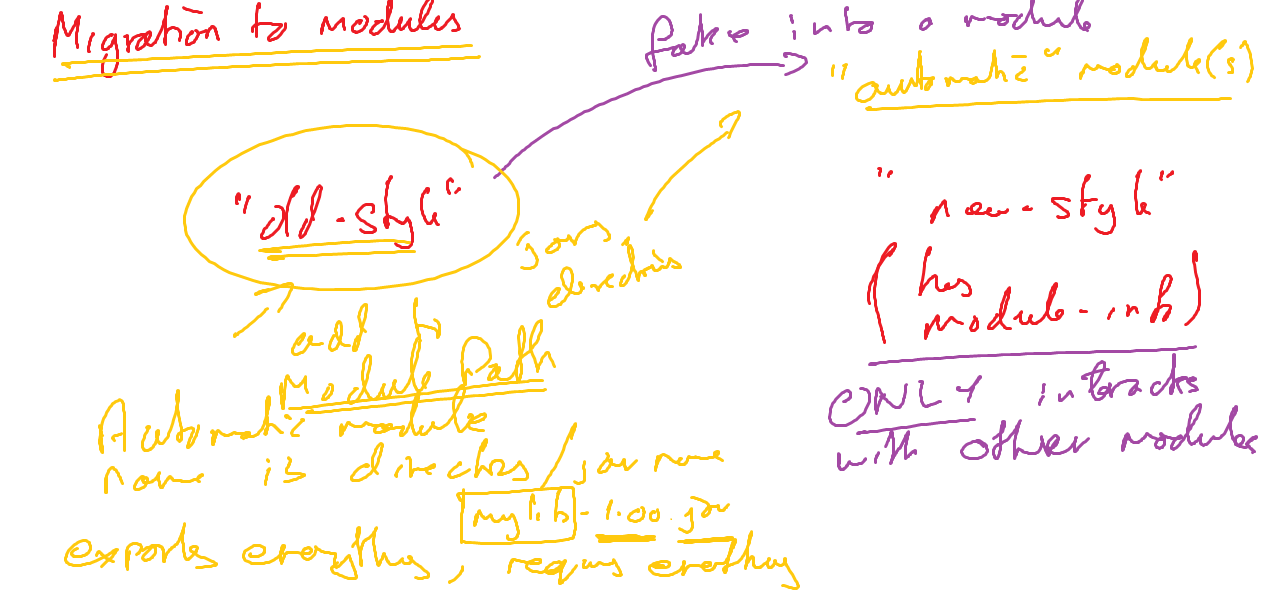 Migration to modules
fake into a module
"automatic" module(s)
"old-style"
jars,
directories
add to
Module Path
Automatic module
name is directory/jar name
mylib-1.00.jar
exports everything, requires everything
"new-style"
(has
module-info)
ONLY interacts
with other modules